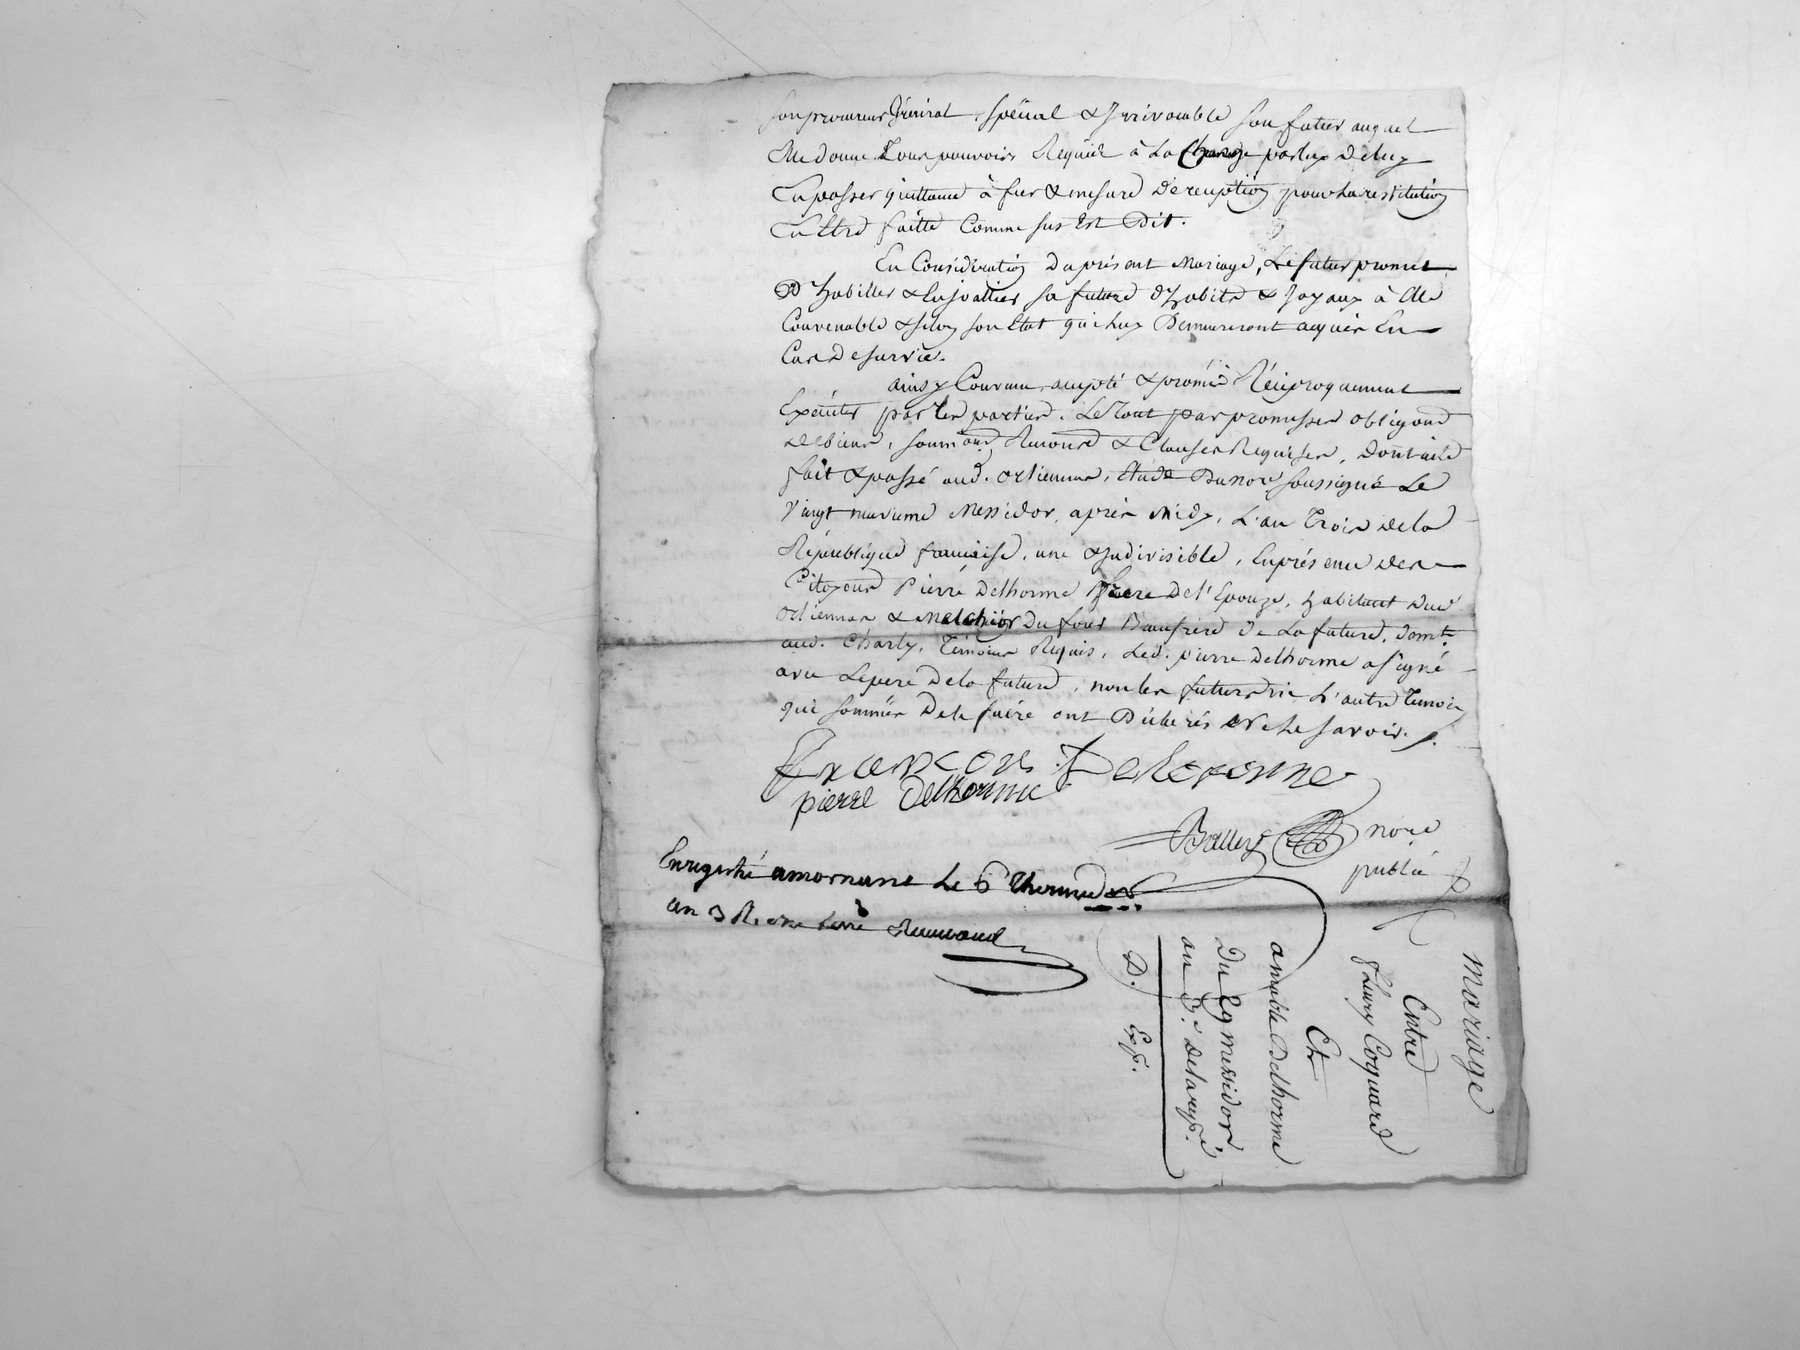 son procureur Général, spécial & Irrévocable son futur auquel
Elle donne Tour pouvoirs Requis à la Charge par luy deluy
En passer quittance à fur & mesure de reception pour la restitution
En Etre faitte Comme sus Est Dit.
En Considération du présent Mariage, Le futur promet
D'habiller & Enjoallier sa future d'habits & Joyaux à Elle
Convenable & selon son Etat qui luy Demeureront acquis En
Cas De survie.
ainsy Convenu, accepté & promis Réciproquement
Exécuter par les parties. Le Tout par promesses obligons
de biens, soumons Renons & Clauses Requises, dont acte
fait & passé aud. orlienas, étude Du nore soussigné Le
Vingt neuvieme Messidor, après Midy, L'an Trois de la
République francaise, une & Indivisible, En présence des
Citoyens Pierre Delhorme frere De l'Epouze, habitant Dud.
Orlienas & Melchior Dufour Beaufrere De La future, domt.
aud. Charly, Témoins Requis, Led. pierre Delhorme a signé
avec Le pere De la future, non les futurs ni L'autre Temoin
qui sommés De le faire ont Déclarés Ne Le savoir.
Francois Delorme
pierre Delhorme
Balley nore
public
Enregistré a mornant Le 6 Thermidor
an 3 R.
mariage
Entre
fleury Coquard
Et
amable Delhorme
Du 29 messidor
an 3.e de la rep.
D. Exp.